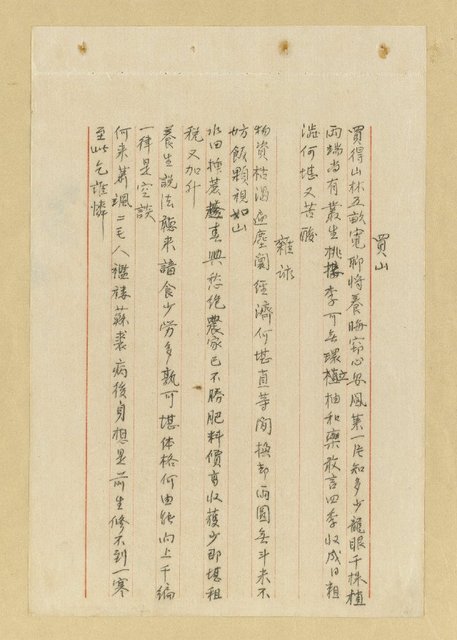 買山
買得山林五畝寬聊將養晦竊心安鳳菓一片知多少龍眼千株植
兩端尚有叢生桃接李可無環植柚和欒敢言四季收成日粗
澁何堪又苦酸
雜詠
物資枯渴遍塵闤經濟何堪直等閒換却兩圓無斗米不
妨飯顆視如山
水田插蒔趁春興愁絕農家已不勝肥料價高收獲少那堪租
稅又加升
養生說法聽來諳食少勞多孰可堪体格何由能向上千編
一律是空談
何來蕭颯二毛人襤褸蘇裘病後身想是前生修不到一寒
至此乞誰憐